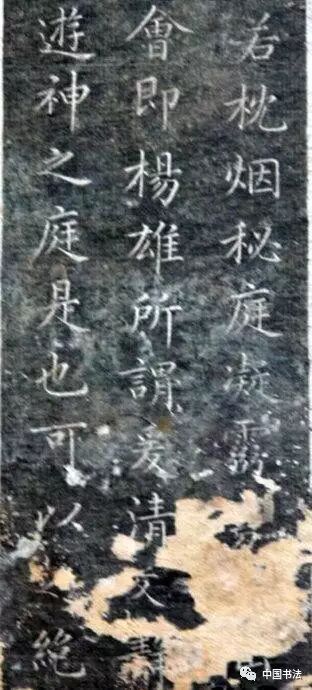 若枕烟秘庭凝
會即楊雄所謂爰清爰靜
遊神之庭是也可以絶
中国书法